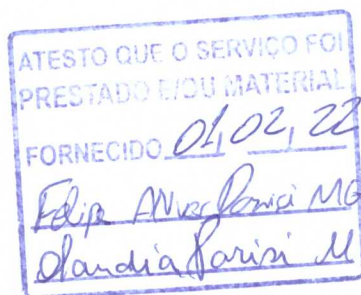 ATESTO QUE O SERVIÇO FOI
PRESTADO E/OU MATERIAL
FORNECIDO 01, 02, 22
Felipe
Claudia Parisi M